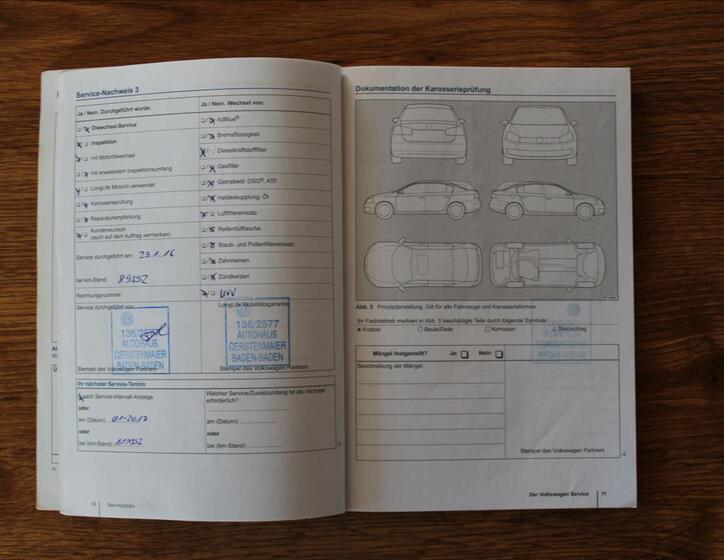 Service-Nachweis 3
Ja / Nein. Durchgeführt wurde:
Ölwechsel-Service
Inspektion
mit Motorölwechsel
mit erweitertem Inspektionsumfang
LongLife Motoröl verwendet
Karosserieprüfung
Reparaturempfehlung
Kundenwunsch
(auch auf dem Auftrag vermerken)
Service durchgeführt am: 29.1.16
bei km-Stand: 89552
Rechnungsnummer:
Service durchgeführt von:
136/2577
AUTOHAUS
GERSTENMAIER
BADEN-BADEN
Stempel des Volkswagen Partners
Ja / Nein. Wechsel von:
AdBlue®
Bremsflüssigkeit
Dieselkraftstofffilter
Gasfilter
Getriebeöl: DSG®, ATF
Haldexkupplung: Öl
Luftfiltereinsatz
Reifenfüllflasche
Staub- und Pollenfiltereinsatz
Zahnriemen
Zündkerzen
LongLife Mobilitätsgarantie
136/2577
AUTOHAUS
GERSTENMAIER
BADEN-BADEN
Stempel des Volkswagen Partners
Ihr nächster Service-Termin
nach Service-Intervall-Anzeige
oder
am (Datum):
oder
bei (km-Stand):
Welcher Service/Zusatzumfang ist als nächster
erforderlich?
am (Datum):
oder
bei (km-Stand):
10 Serviceplan
Dokumentation der Karosserieprüfung
Abb. 5 Prinzipdarstellung. Gilt für alle Fahrzeuge und Karosserieformen.
Ihr Fachbetrieb markiert in Abb. 5 beschädigte Teile durch folgende Symbole:
Kratzer Beule/Delle Korrosion Steinschlag
Mängel festgestellt? Ja: Nein:
Beschreibung der Mängel:
Stempel des Volkswagen Partners
Der Volkswagen Service 11